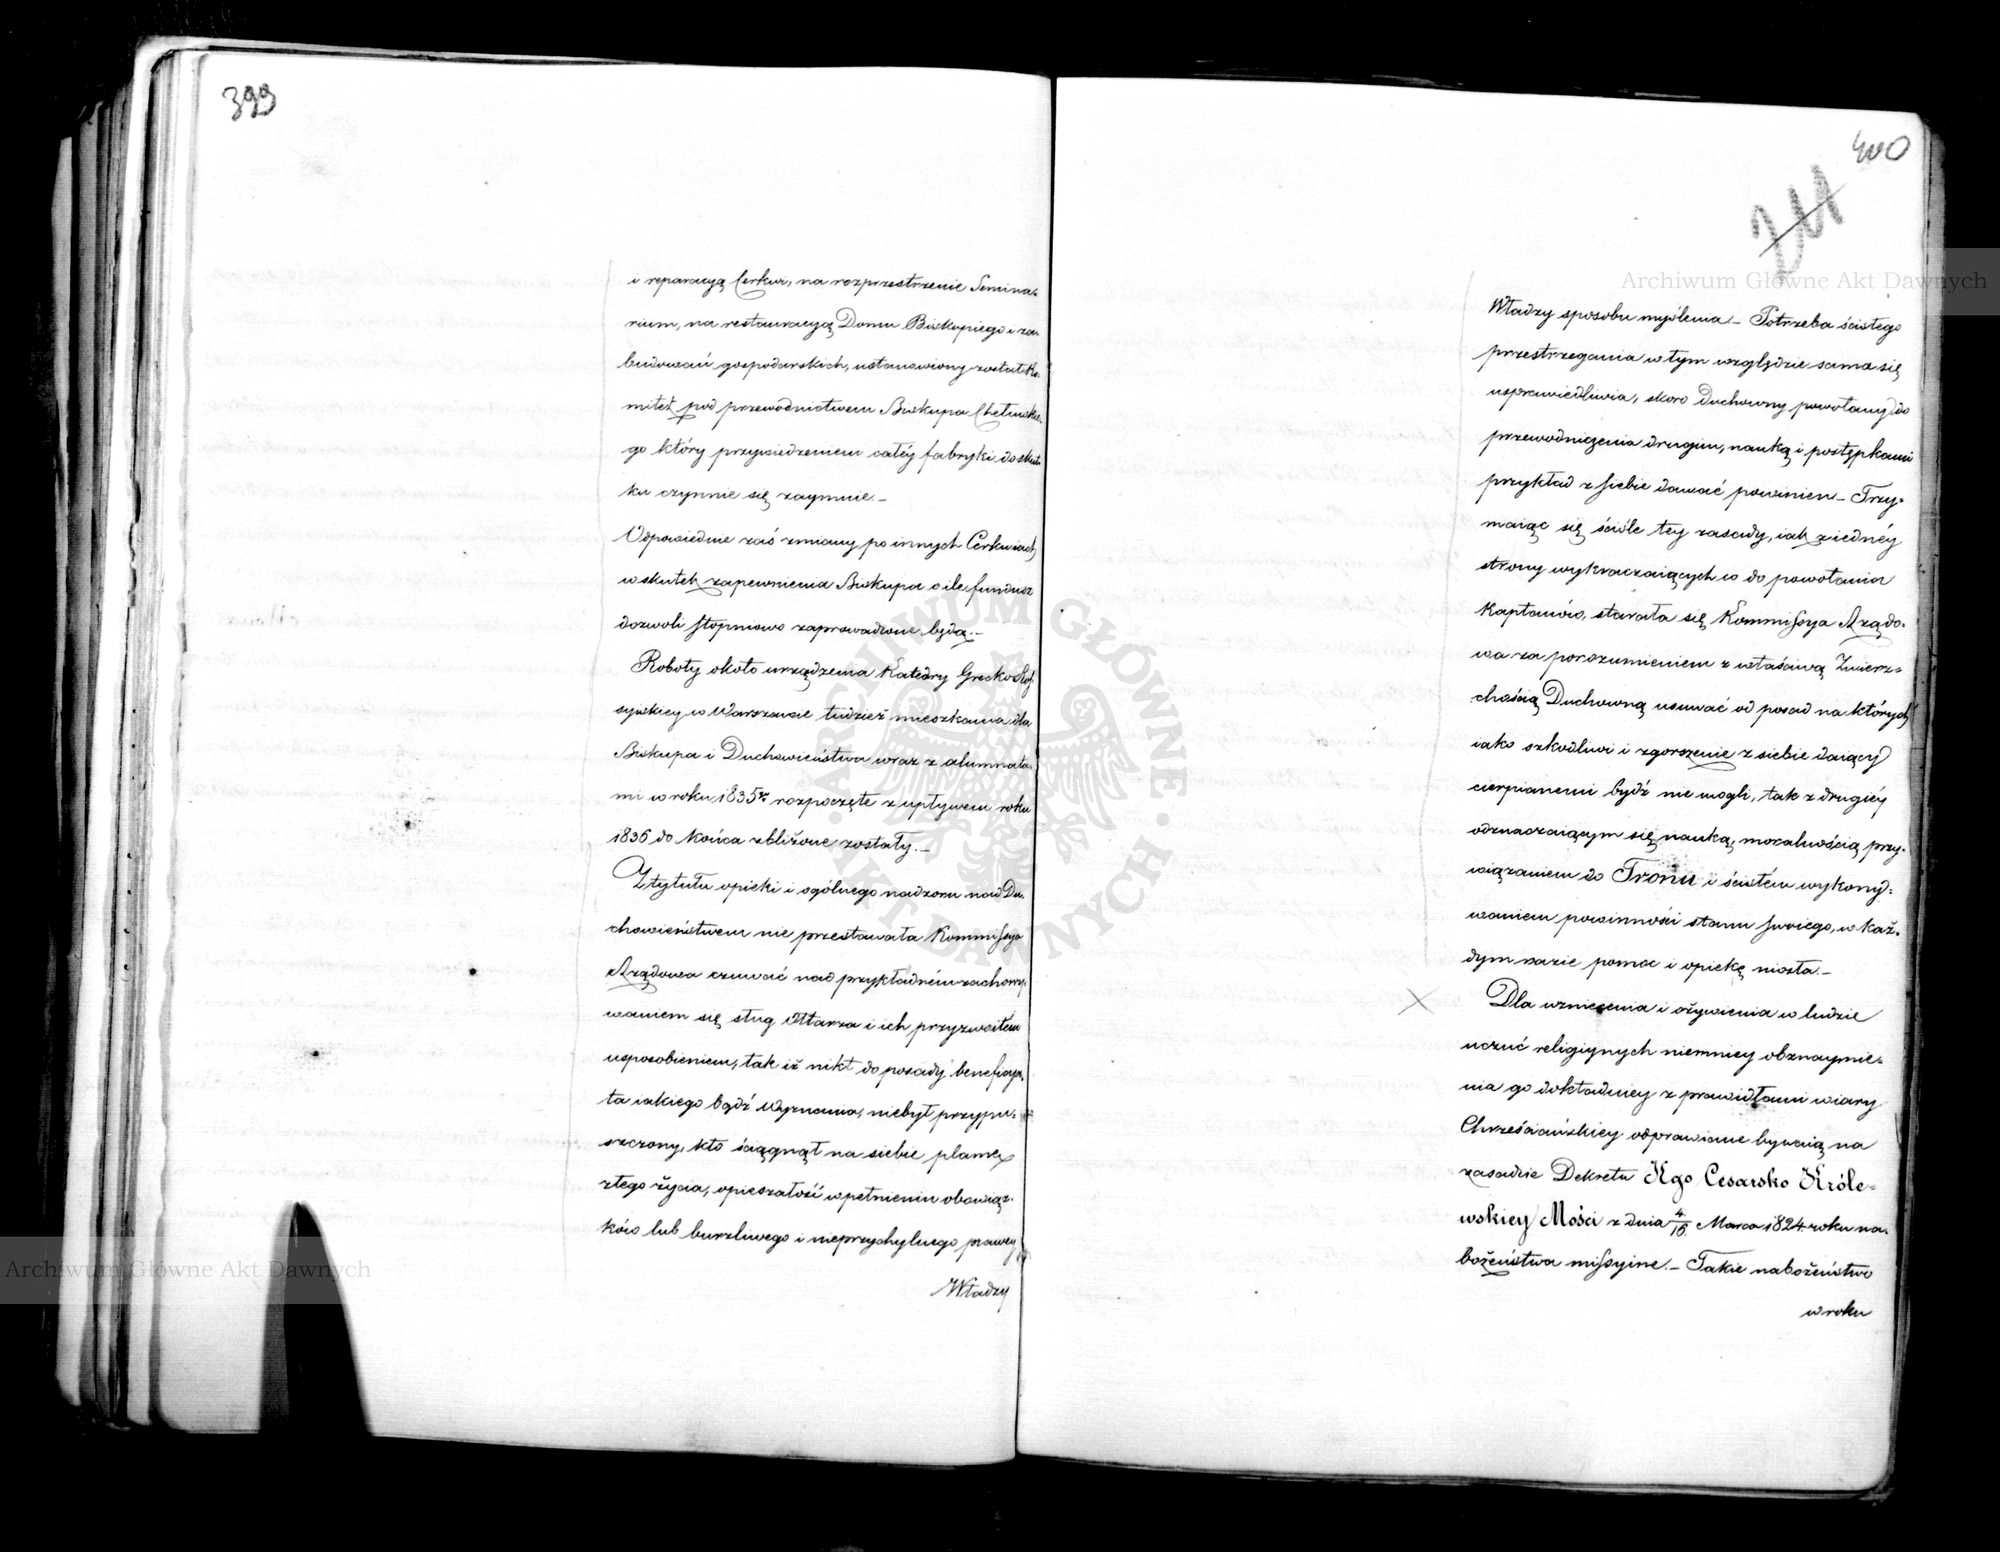 399
i reparacyą Cerkwi, na rozprzestrzenie Semina-
rium, na restauracyą Domu Biskupiego i za-
budowań gospodarskich, ustanowiony został Ko-
mitet pod przewodnictwem Biskupa Chełmskie-
go który przywiedzeniem całéy fabryki do skut-
ku czynnie się zaymie. –
Odpowiednie zaś zmiany po innych Cerkwiach
wskutek zapewnienia Biskupa o ile fundusz
dozwoli stopniowo zaprowadzone będą. –
Roboty około urządzenia Katedry Grecko Ros-
syiskiey w Warszawie tudzież mieszkania dla
Biskupa i Duchowieństwa wraz z alumnata-
mi w roku 1835 rozpoczęte z upływem roku
1836 do końca zbliżone zostały. –
Z tytułu opieki i ogólnego nadzoru nad Du-
chowieństwem nie przestawała Kommissya
Rządowa czuwać nad przykładném zachowy-
waniem się sług Ołtarza i ich przyzwoitem
usposobieniem, tak iż nikt do posady beneficya-
ta iakiego bądź Wyznania, niebył przypu-
szczony, kto ściągnął na siebie plamę
złego życia, opieszałość w pełnieniu obowiąz-
ków lub burzliwego i nieprzychylnego prawey
Władzy
400
Władzy sposobu myślenia. – Potrzeba ścisłego
przestrzegania w tym względzie sama się
usprawiedliwia, skoro Duchowny powołany do
przewodniczenia drugim, nauką i postępkami
przykład z siebie dawać powinien. – Trzy-
maiąc się ściśle tey zasady, iak z iednéy
strony wykraczaiących w do powołania
Kapłanów, starała się Kommissya Rządo-
wa za porozumieniem z właściwą Zwierz-
chością Duchowną usuwać od posad na których
iako szkodliwi i zgorszenie z siebie daiący
cierpianemi bydź nie mogli, tak z drugiéy
odznaczaiącym się nauką, moralnością przy-
wiązaniem do Tronu i ścisłem wykony-
waniem powinności stanu swoiego, w każ-
dym razie pomoc i opiekę niosła. –
Dla wzniesienia i ożywienia w ludzie
uczuć religiynych niemniey obznaymie-
nia go dokładniey z prawidłami wiary
Chrześciańskiey odprawiane bywaią na
zasadzie Dekretu JEgo Cesarsko Króle-
wskiey Mości z dnia 4/16 Marca 1824 roku na-
bożeństwa missyine. – Takie nabożeństwo
w roku
Archiwum Główne Akt Dawnych
Archiwum Główne Akt Dawnych
ARCHIWUM GŁÓWNE · AKT DAWNYCH ·